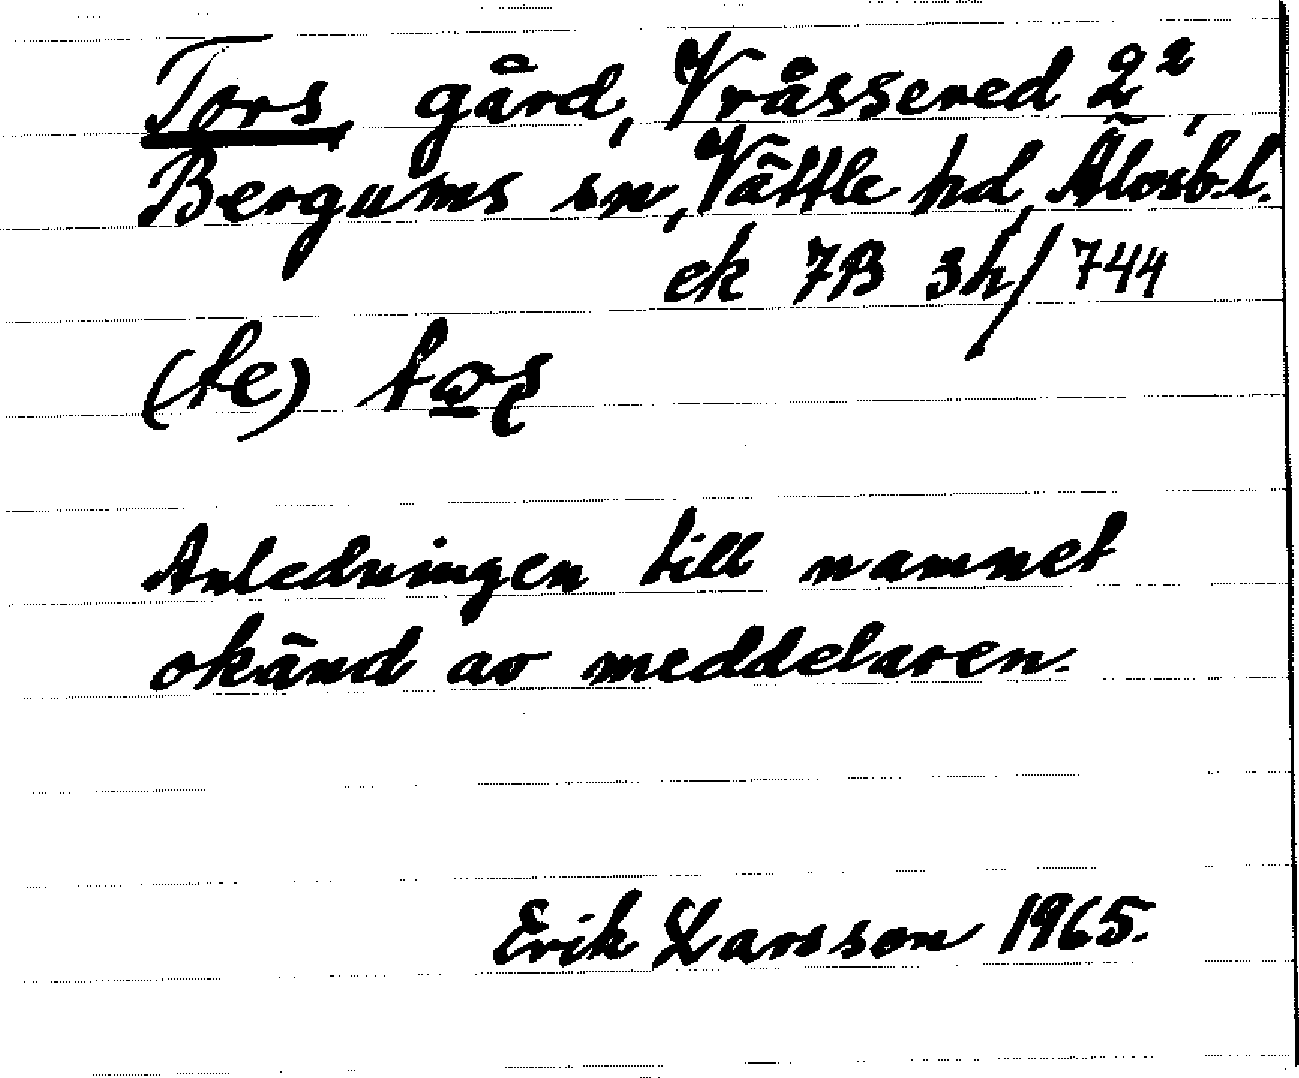 Tors, gård, Vråssered 2²,
Bergums sn, Vättle hd, Älvsb.l.
ek 7B 3h/744
(te) to̲ʂ
Anledningen till namnet
okänd av meddelaren.
Erik Larsson 1965.